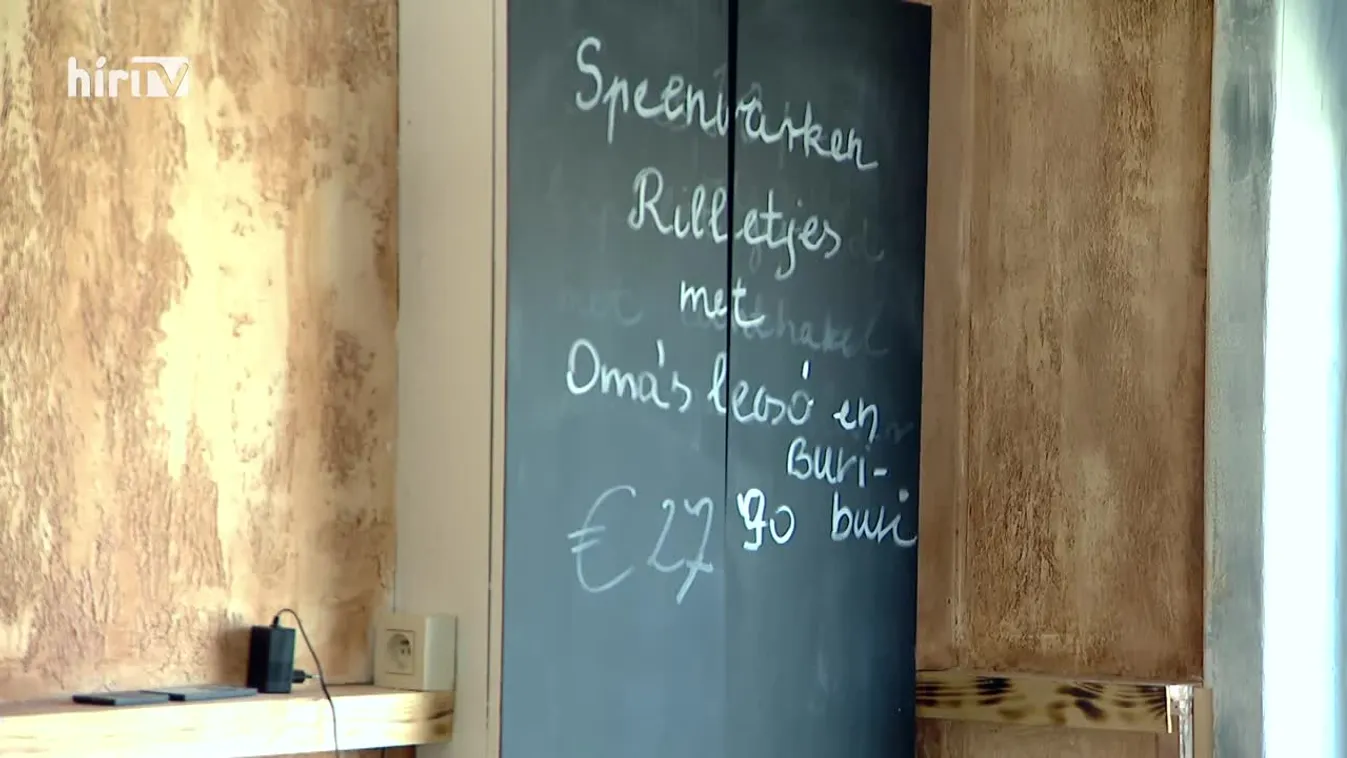 híriTV
Speenvarken
Rilletjes
met
Oma's lecsó en
Buri-
€ 27 90 buri